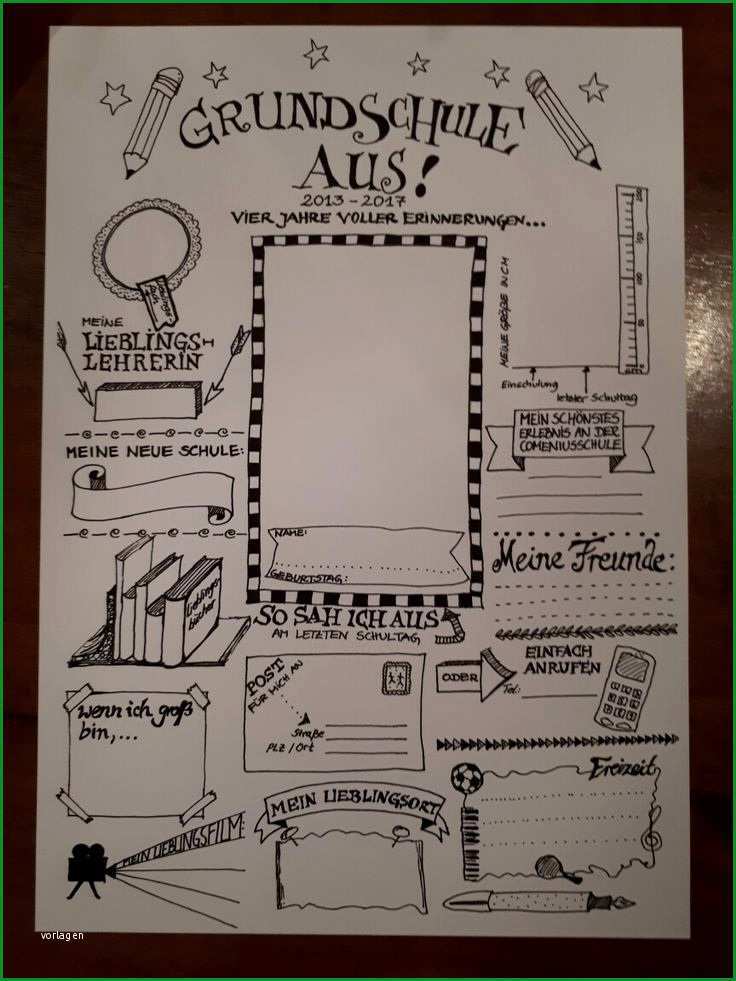 GRUNDSCHULE
AUS!
2013 - 2017
VIER JAHRE VOLLER ERINNERUNGEN...
MEINE
LIEBLINGS-
LEHRERIN
MEINE NEUE SCHULE:
Lieblings-
bücher
wenn ich groß
bin,...
MEIN LIEBLINGSFILM:
NAME:
GEBURTSTAG:
SO SAH ICH AUS
AM LETZTEN SCHULTAG
POST
FÜR MICH AN
Straße
PLZ / Ort
MEIN LIEBLINGSORT
MEINE GRÖßE IN CM
200
150
100
50
Einschulung
letzter Schultag
MEIN SCHÖNSTES
ERLEBNIS AN DER
COMENIUSSCHULE
Meine Freunde:
ODER
EINFACH
ANRUFEN
Tel.:
Freizeit
vorlagen